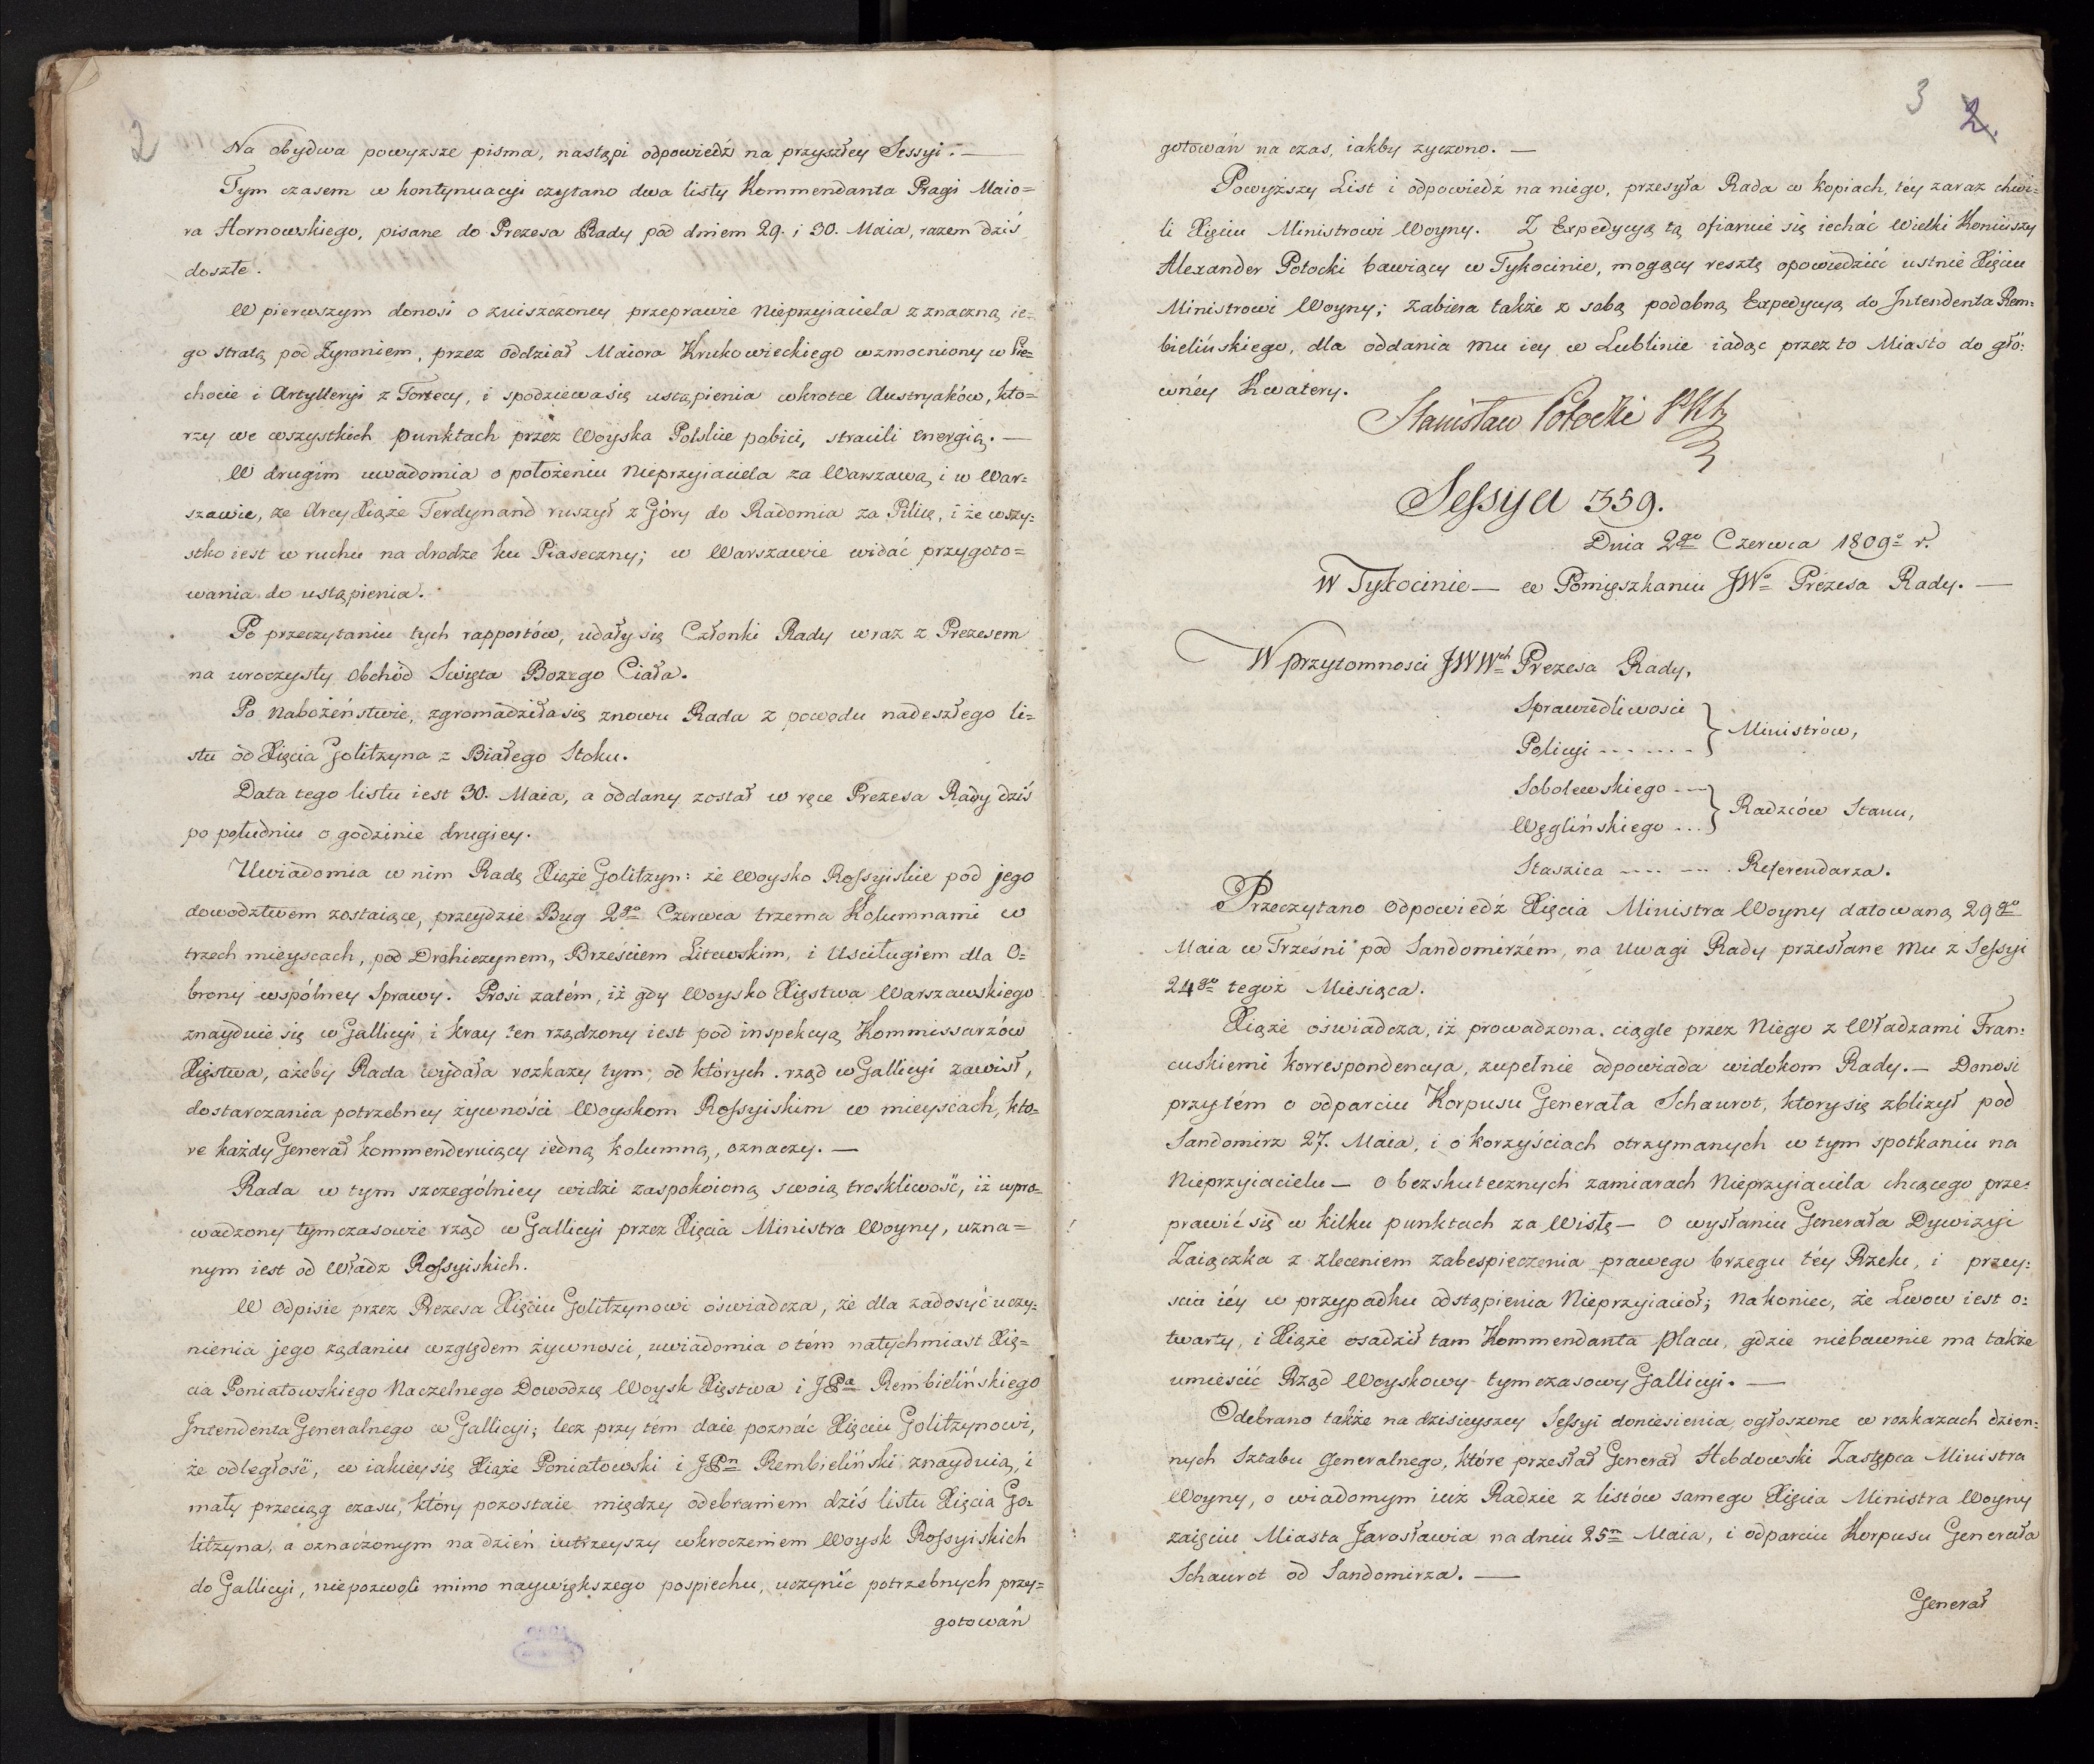 2
Na obydwa powyzsze pisma, nastąpi odpowiedź na przyszłey Sessyi. —
Tym czasem w kontynuacyi czytano dwa listy Kommendanta Pragi Maio=
ra Hornowskiego, pisane do Prezesa Rady pod dniem 29. i 30. Maia, razem dziś
doszłe.
W pierwszym donosi o zniszczoney przeprawie Nieprzyiaciela z znaczną ie=
go stratą pod Zyroniem, przez oddział Maiora Krukowieckiego wzmocniony w Pie=
chocie i Artylleryi z Fortecy, i spodziewa się ustąpienia wkrotce Austryaków, kto=
rzy we wszystkich punktach przez Woyska Polskie pobici, stracili energią. —
W drugim uwiadomia o położeniu Nieprzyiaciela za Warszawą, i w War=
szawie, że Arcy Xiąże Ferdynand ruszył z Góry do Radomia za Pilicę, i że wszy=
stko iest w ruchu na drodze ku Piaseczny; w Warszawie widać przygoto=
wania do ustąpienia.
Po przeczytaniu tych rapportów, udały się Członki Rady wraz z Prezesem
na uroczysty Obchód Swięta Bozego Ciała.
Po Nabożeństwie, zgromadziła się znowu Rada z powodu nadeszłego li=
stu od Xięcia Golitzyna z Białego Stoku.
Data tego listu iest 30. Maia, a oddany został w ręce Prezesa Rady dziś
po południu o godzinie drugiey.
Uwiadomia w nim Radę Xiąże Golitzyn: że Woysko Rossyiskie pod jego
dowodztwem zostaiące, przeydzie Bug 2go Czerwca trzema Kolumnami w
trzech mieyscach, pod Drohiczynem, Brześciem Litewskim, i Uscilugiem dla O=
brony wspólney Sprawy. Prosi zatém, iż gdy Woysko Xięstwa Warszawskiego
znayduie się w Gallicyi, i kray ten rządzony iest pod inspekcyą Kommissarzów
Xięstwa, ażeby Rada wydała rozkazy tym, od których rząd w Gallicyi zawisł,
dostarczania potrzebney żywności Woyskom Rossyiskim w mieyscach, kto=
re każdy Generał kommenderuiący iedną kolumną, oznaczy. —
Rada w tym szczególniey widzi zaspokoioną swoią troskliwość, iż wpro=
wadzony tymczasowie rząd w Gallicyi przez Xięcia Ministra Woyny, uzna=
nym iest od Władz Rossyiskich.
W Odpisie przez Prezesa Xięciu Golitzynowi oświadcza, że dla zadosyć uczy=
nienia jego żądaniu względem żywnosci, uwiadomia o tém natychmiast Xię=
cia Poniatowskiego Naczelnego Dowodzcę Woysk Xięstwa i JPa Rembielińskiego
Intendenta Generalnego w Gallicyi; lecz przy tém daie poznać Xięciu Golitzynowi,
że odległość, w iakiey się Xiąże Poniatowski i JPn Rembieliński znayduią, i
mały przeciąg czasu, który pozostaie między odebraniem dziś listu Xięcia Go=
litzyna, a oznaczonym na dzień iutrzeyszy wkroczeniem Woysk Rossyiskich
do Gallicyi, niepozwoli mimo naywiększego pospiechu, uczynić potrzebnych przy=
gotowań
3 2.
gotowań na czas, iakby zyczono. —
Powyższy List i odpowiedź na niego, przesyła Rada w kopiach, téy zaraz chwi=
li Xięciu Ministrowi Woyny. Z Expedycyą tą ofiaruie się iechać Wielki Koniuszy
Alexander Potocki bawiący w Tykocinie, mogący resztę opowiedzieć ustnie Xięciu
Ministrowi Woyny; zabiera także z sobą podobną Expedycyą do Intendenta Rem=
bielińskiego, dla oddania mu iey w Lublinie iadąc przez to Miasto do głó=
wnéy Kwatery.
Stanisław Potocki
Sessya 359.
Dnia 2go Czerwca 1809o r.
W Tykocinie — w Pomięszkaniu JWo Prezesa Rady. —
W przytomnosci JWWch Prezesa Rady,
Sprawiedliwosci
Policyi - - - - } Ministrów,
Sobolewskiego - -
Węglińskiego ... } Radzców Stanu,
Staszica - - - - - - . Referendarza.
Przeczytano Odpowiedź Xięcia Ministra Woyny datowaną 29go
Maia w Trześni pod Sandomirzém, na Uwagi Rady przesłane mu z Sessyi
24go tegoż Miesiąca.
Xiąże oświadcza, iż prowadzona ciągle przez Niego z Władzami Fran=
cuskiemi korrespondencya, zupełnie odpowiada widokom Rady. — Donosi
przytém o odparciu Korpusu Generała Schaurot, który się zblizył pod
Sandomirz 27. Maia, i o korzyściach otrzymanych w tym spotkaniu na
Nieprzyiacielu — O bezskutecznych zamiarach Nieprzyiaciela chcącego prze=
prawić się w kilku punktach za Wisłę — O wysłaniu Generała Dywizyi
Zaiączka z zleceniem zabespieczenia prawego brzegu téy Rzeki, i przey=
scia iéy w przypadku odstąpienia Nieprzyiaciół; nakoniec, że Lwow iest o=
twarty, i Xiąże osadził tam Kommendanta Placu, gdzie niebawnie ma także
umieścić Rząd Woyskowy tymczasowy Gallicyi. —
Odebrano także na dzisieyszey Sessyi doniesienia ogłoszone w rozkazach dzien=
nych Sztabu Generalnego, które przesłał Generał Hebdowski Zastępca Ministra
Woyny, o wiadomym iuż Radzie z listów samego Xięcia Ministra Woyny
zaięciu Miasta Jarosławia na dniu 25m Maia, i odparciu Korpusu Generała
Schaurot od Sandomirza. —
Generał